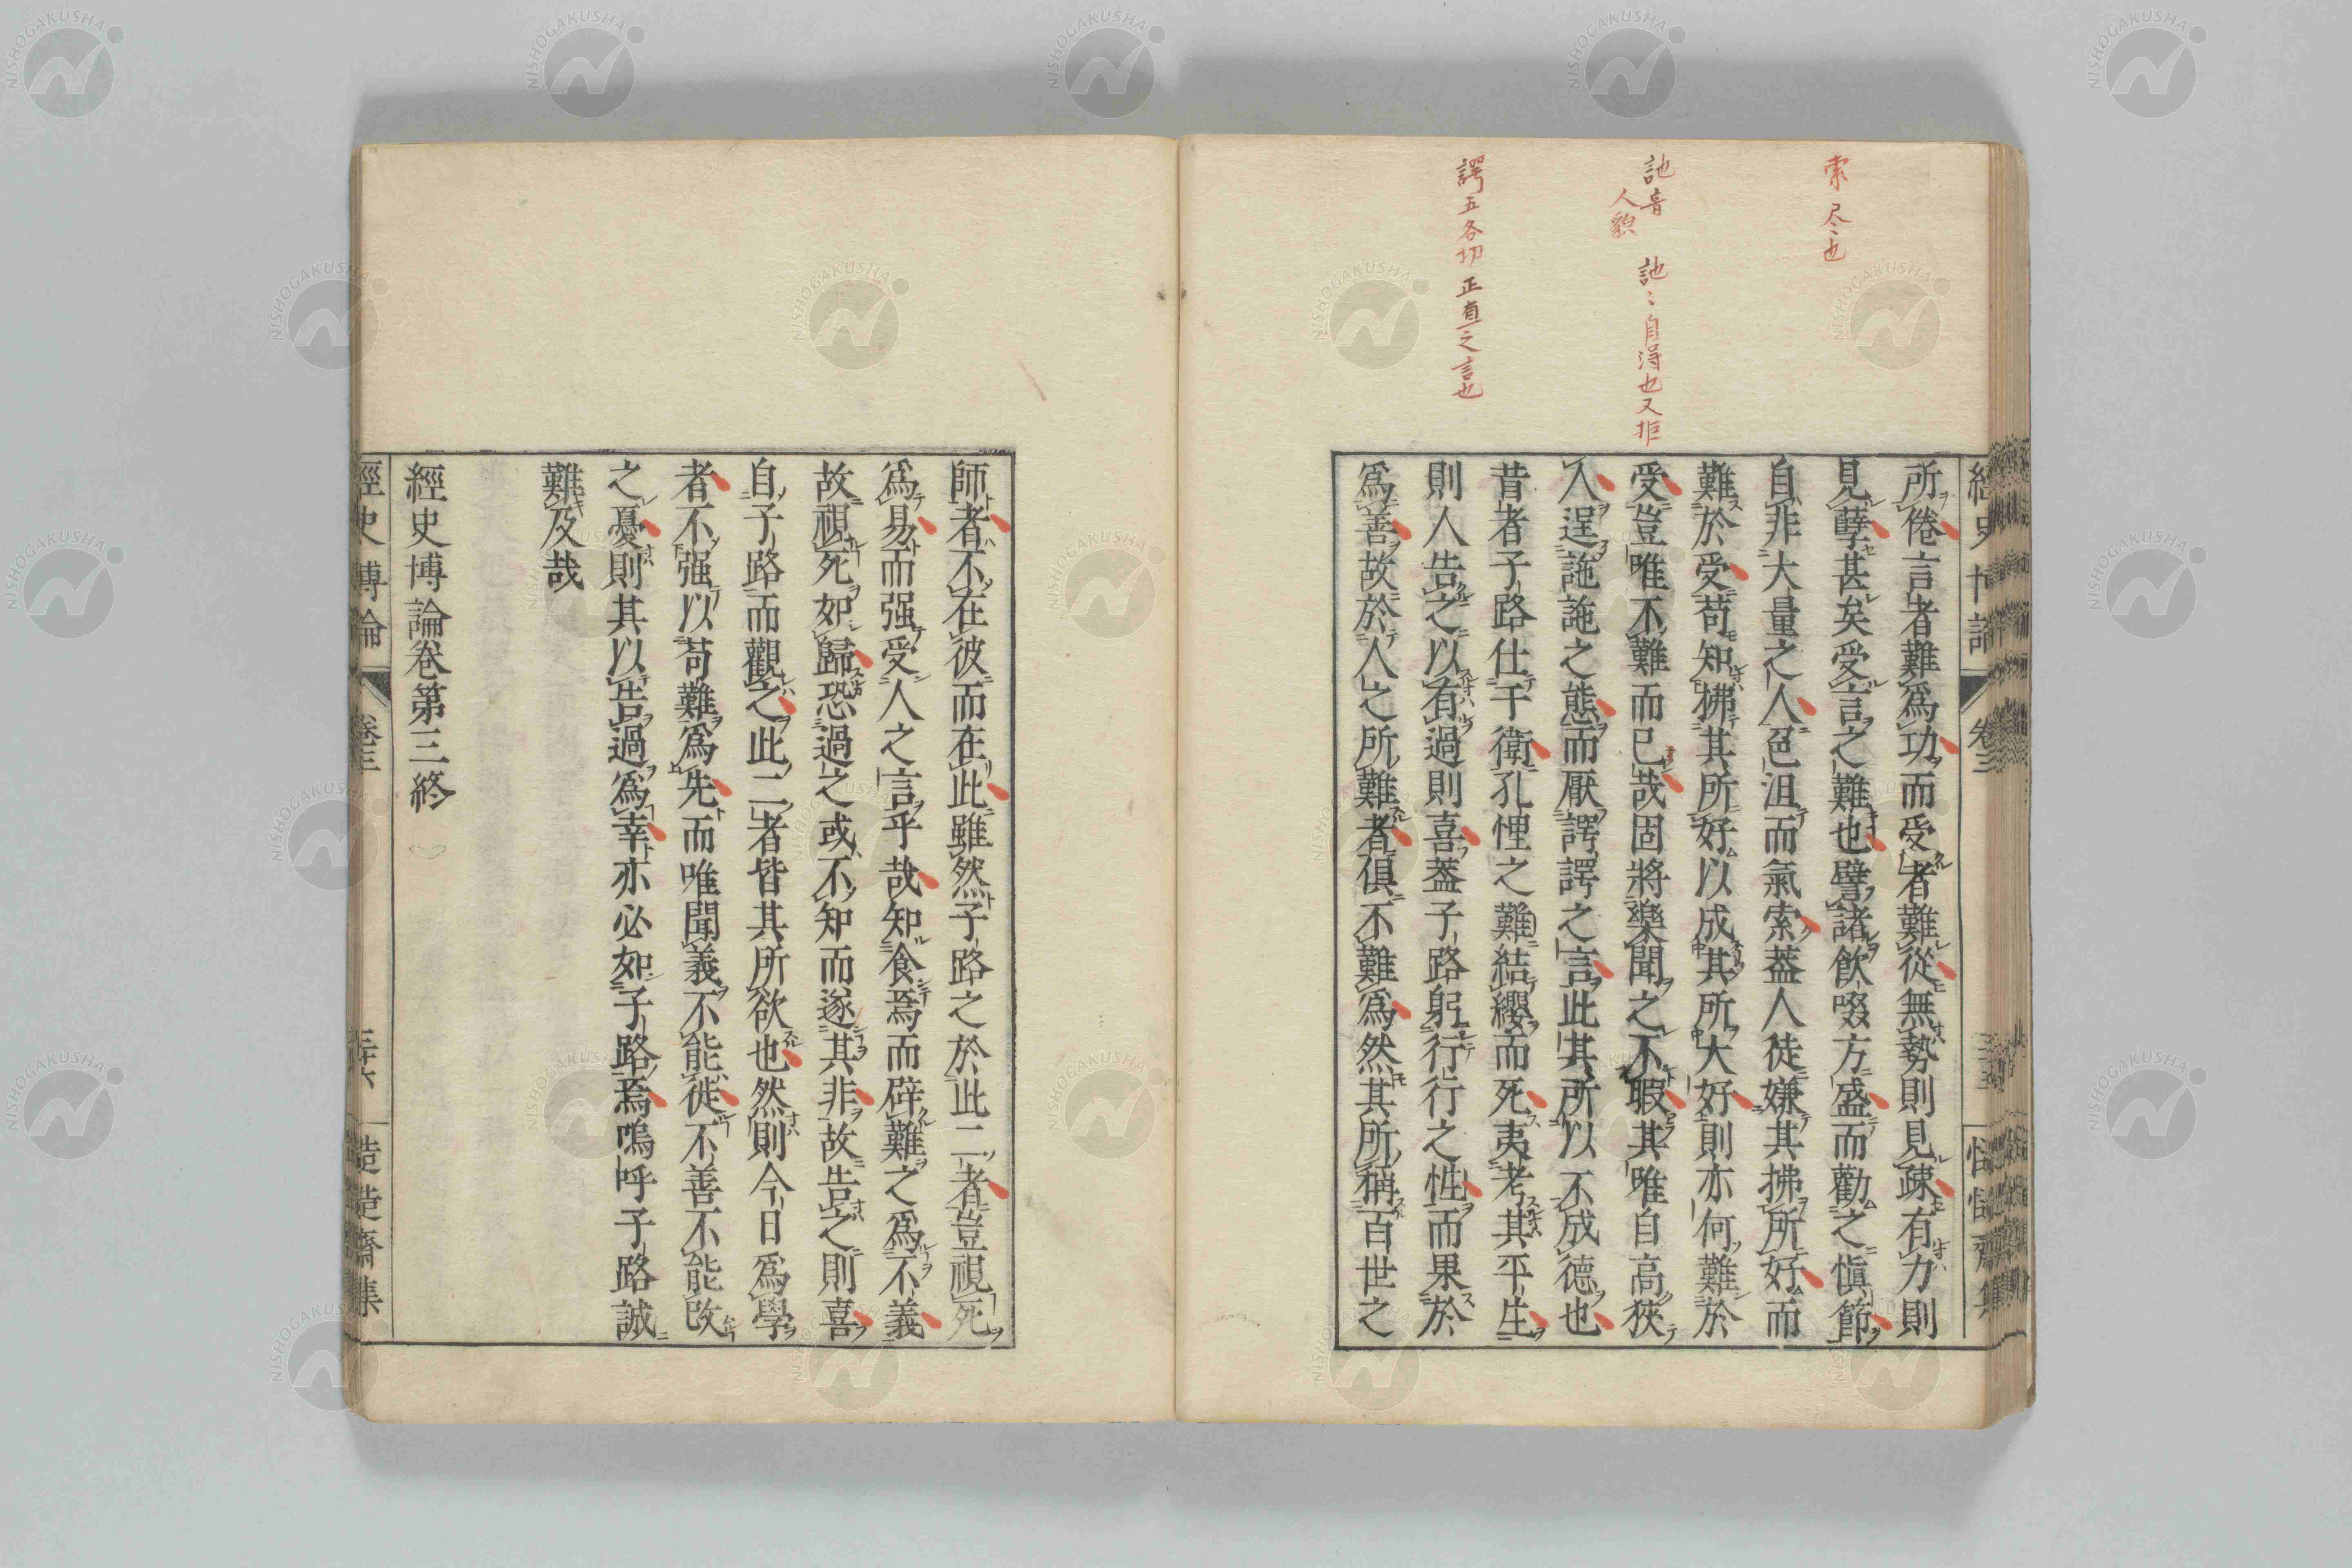 索 尽也
訑音
人貌
訑〻自得也又拒
諤五各切 正直之言也
所倦言者難爲功而受者難從無勢則見疎有力則
見孽甚矣受言之難也譬諸飲啜方盛而勸之愼節
自非大量之人色沮而氣索蓋人徒嫌其拂所好而
難於受苟知拂其所好以成其所大好則亦何難於
受豈唯不難而已哉固將樂聞之不暇其唯自高狹
人逞訑訑之態而厭諤諤之言此其所以不成德也
昔者子路仕于衛孔悝之難結纓而死夷考其平生
則人告之以有過則喜蓋子路躬行行之性而果於
爲善故於人之所難者俱不難爲然其所稱百世之
師者不在彼而在此雖然子路之於此二者豈視死
爲易而强受人之言乎哉知食焉而辟難之爲不義
故視死如歸恐過之或不知而遂其非故告之則喜
自子路而觀之此二者皆其所欲也然則今日爲學
者不强以苟難爲先而唯聞義不能徙不善不能改
之憂則其以告過爲幸亦必如子路焉嗚呼子路誠
難及哉
經史博論卷第三終
經史博論 卷三
NISHOGAKUSHA